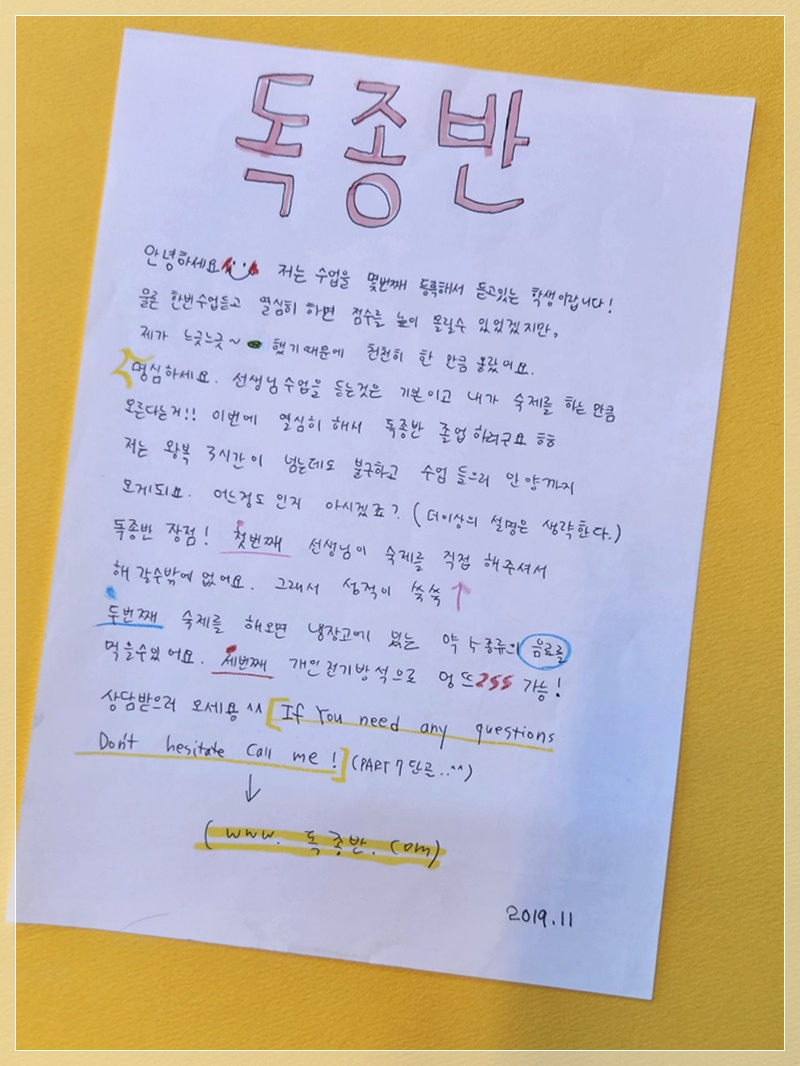 독종반
안녕하세요 저는 수업을 몇번째 등록해서 듣고있는 학생이랍니다!
물론 한번수업듣고 열심히 하면 점수를 높이 올릴수 있었겠지만,
제가 느긋느긋~ 했기때문에 천천히 한 만큼 올랐어요.
명심하세요. 선생님수업을 듣는것은 기본이고 내가 숙제를 하는만큼
오른다는거!! 이번에 열심히 해서 독종반 졸업하려구요 ㅎㅎ
저는 왕복 3시간이 넘는데도 불구하고 수업 들으러 안양까지
오게되요. 어느정도 인지 아시겠죠? (더이상의 설명은 생략한다.)
독종반 장점! 첫번째 선생님이 숙제를 직접 해주셔서
해갈수밖에 없어요. 그래서 성적이 쑥쑥↑
두번째 숙제를 해오면 냉장고에 있는 약 5종류의 음료를
먹을수있어요. 세번째 개인전기방석으로 엉뜨 가능!
상담받으러 오세용^^ [If You need any questions
Don't hesitate Call me!] (PART 7 단골..^^)
↓
(www. 독종반. com)
2019.11